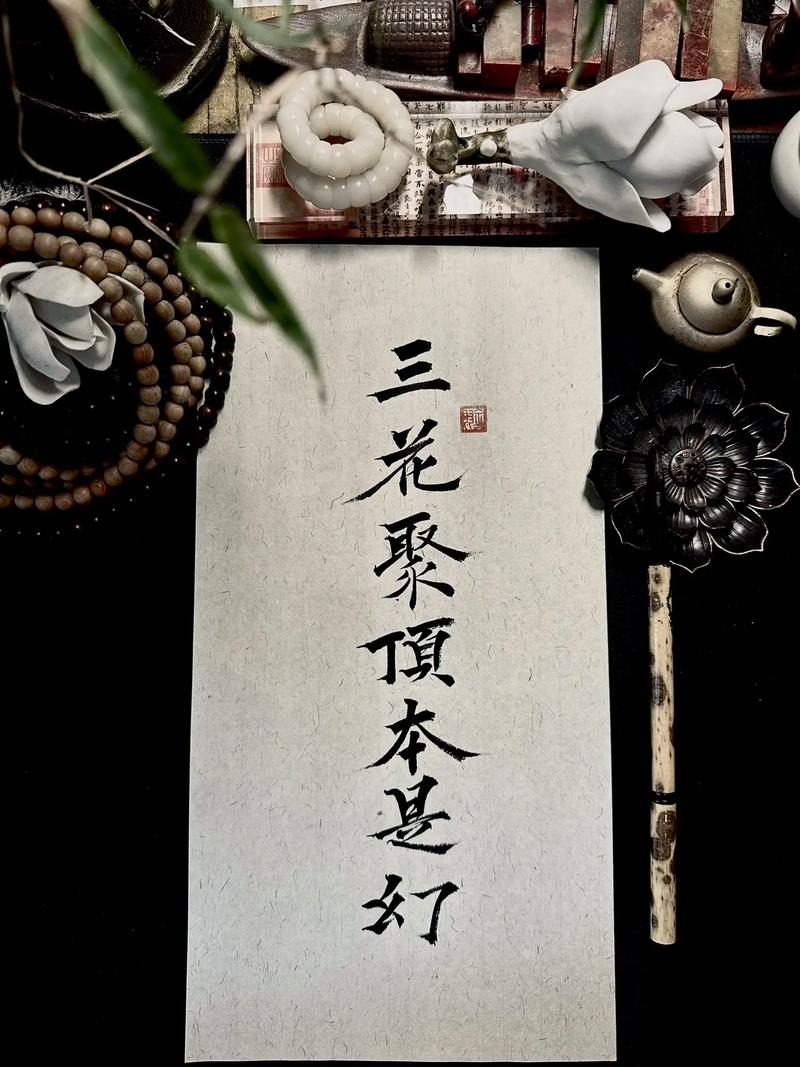 三花聚頂本是幻